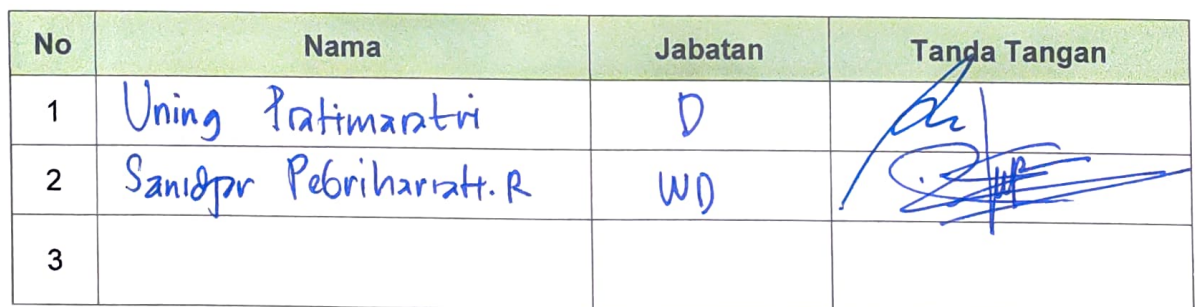 No Nama Jabatan Tanda Tangan
1 Uning Pratimaratri D
2 Sanidjar Pebrihariati. R WD
3